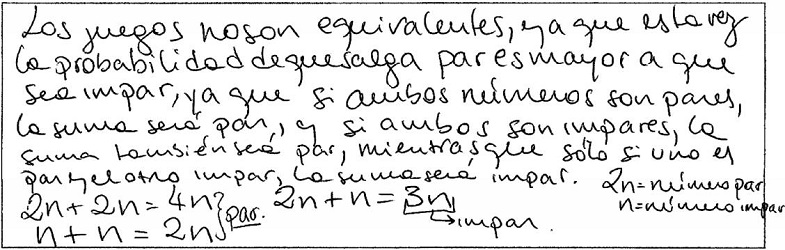 Los juegos no son equivalentes, ya que esta vez
la probabilidad de que salga par es mayor a que
sea impar, ya que si ambos números son pares,
la suma será par, y si ambos son impares, la
suma también será par, mientras que sólo si uno es
par y el otro impar, la suma será impar. 2n = número par
2n + 2n = 4n } par. 2n + n = 3n n = número impar
n + n = 2n → impar.